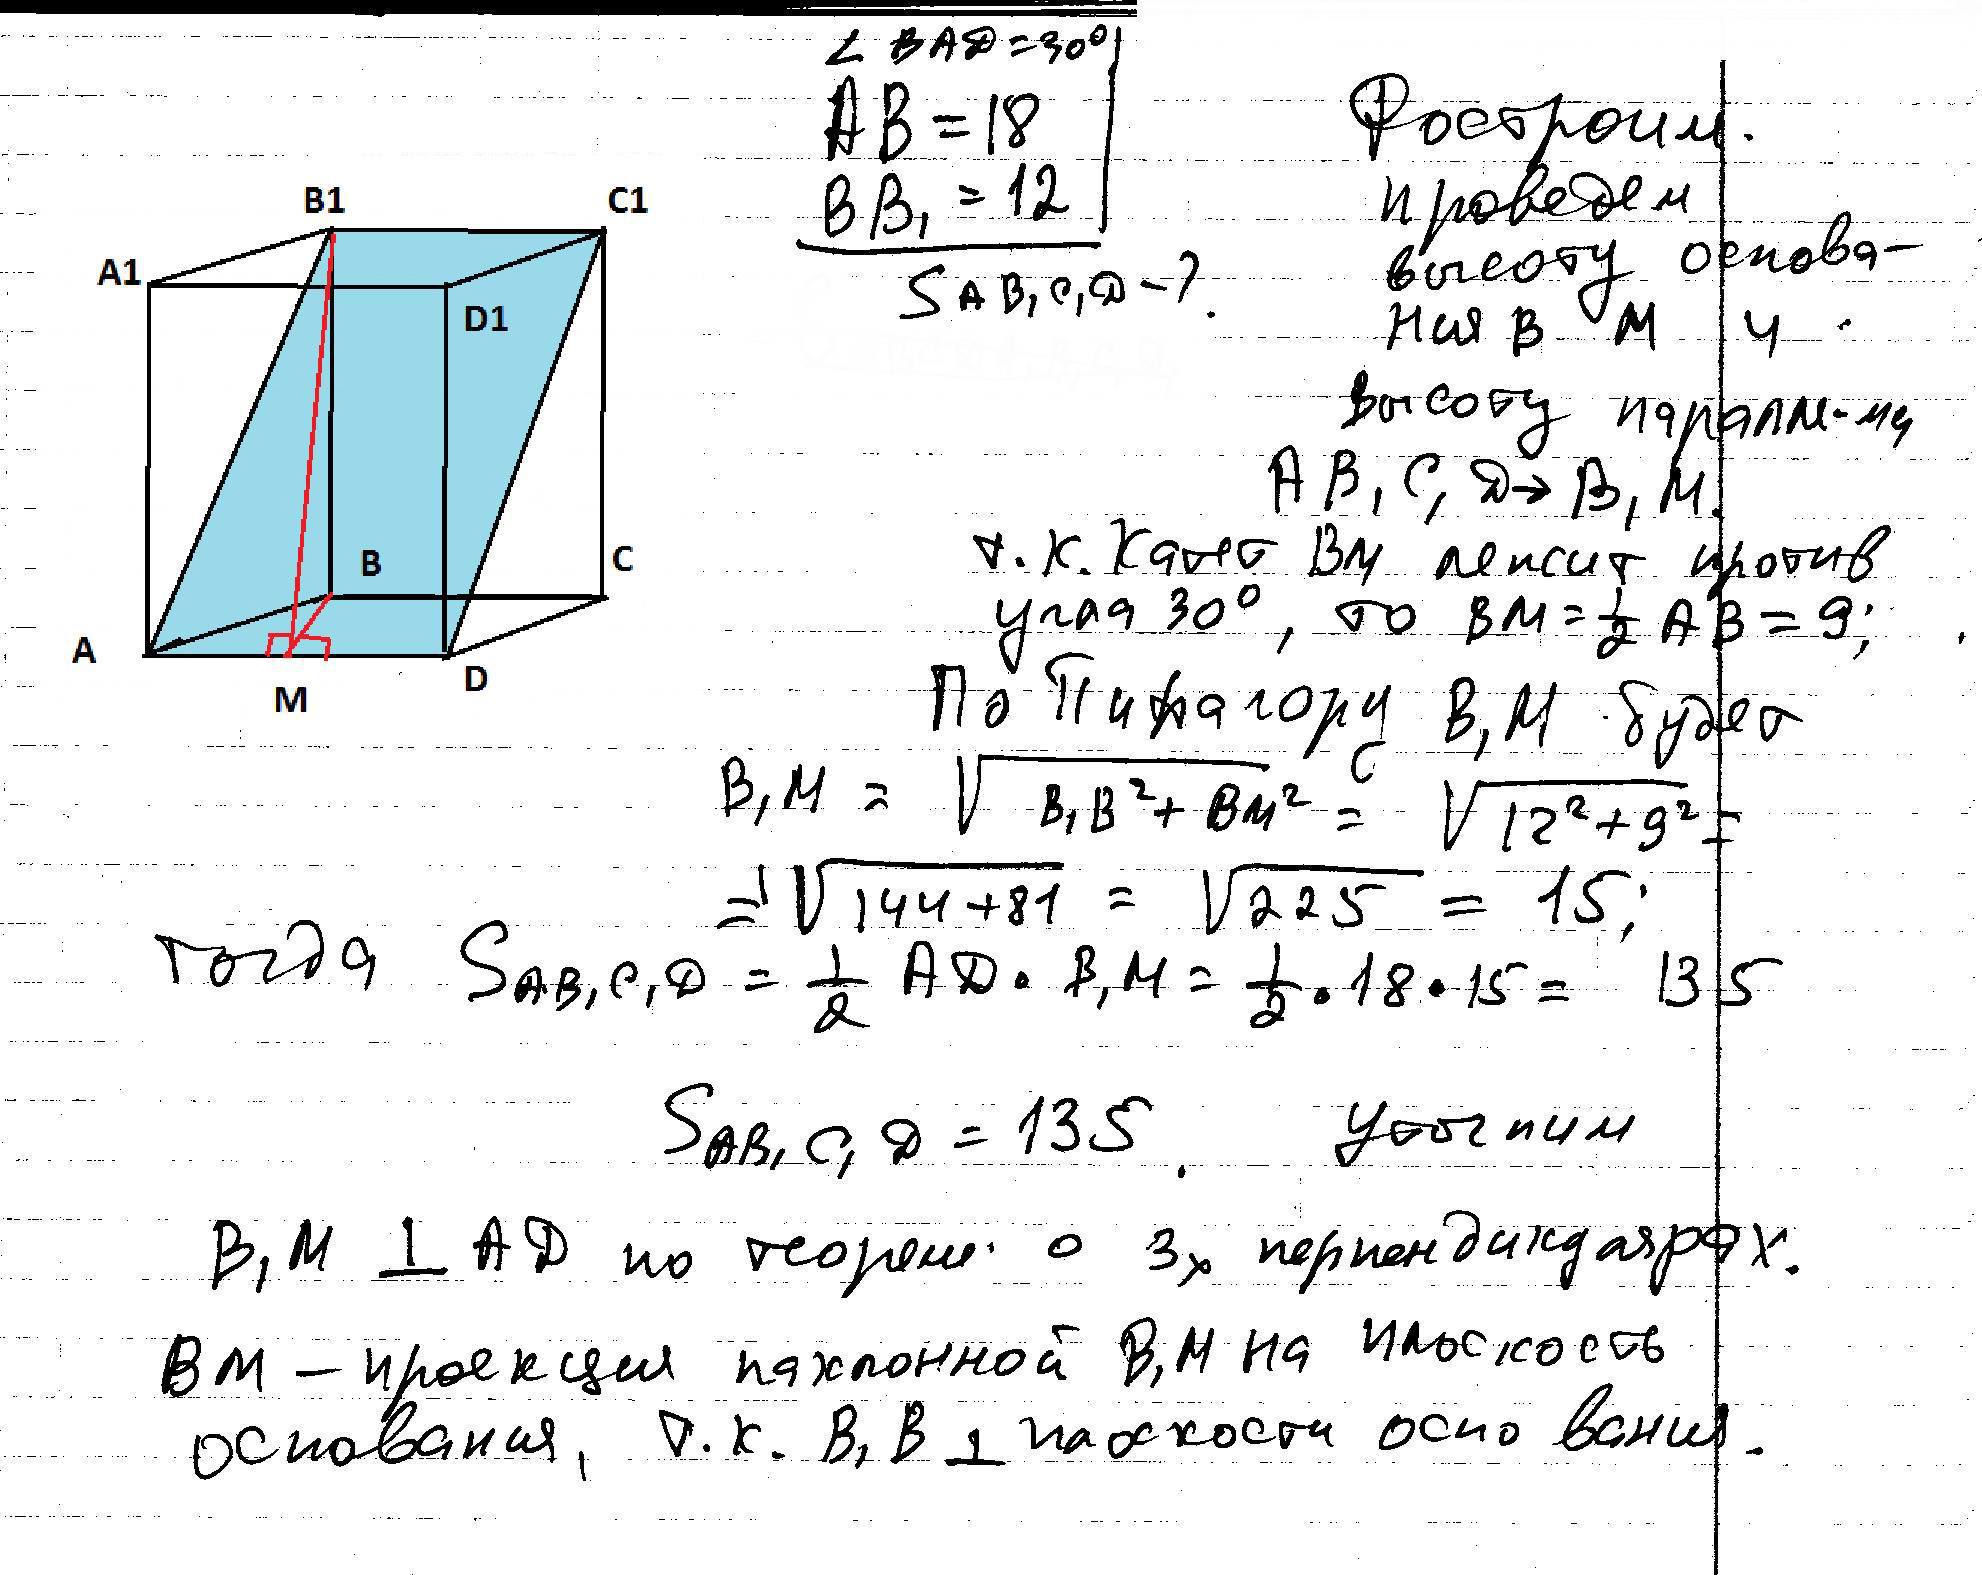 ∠ BAD = 30°
AB = 18
BB₁ = 12
S AB₁C₁D - ?
Построим.
проведем
высоту основа-
ния BM и
высоту паралл-ма
AB₁C₁D → B₁M.
т.к. катет BM лежит против
угла 30°, то BM = 1/2 AB = 9;
По Пифагору B₁M будет
B₁M = √(B₁B² + BM²) = √(12² + 9²) =
= √(144 + 81) = √225 = 15;
тогда S AB₁C₁D = 1/2 AD · B₁M = 1/2 · 18 · 15 = 135
S AB₁C₁D = 135. уточним
B₁M ⊥ AD по теореме о 3х перпендикулярах.
BM – проекция наклонной B₁M на плоскость
основания, т.к. B₁B ⊥ плоскости основания.
B1
C1
A1
D1
B
C
A
D
M